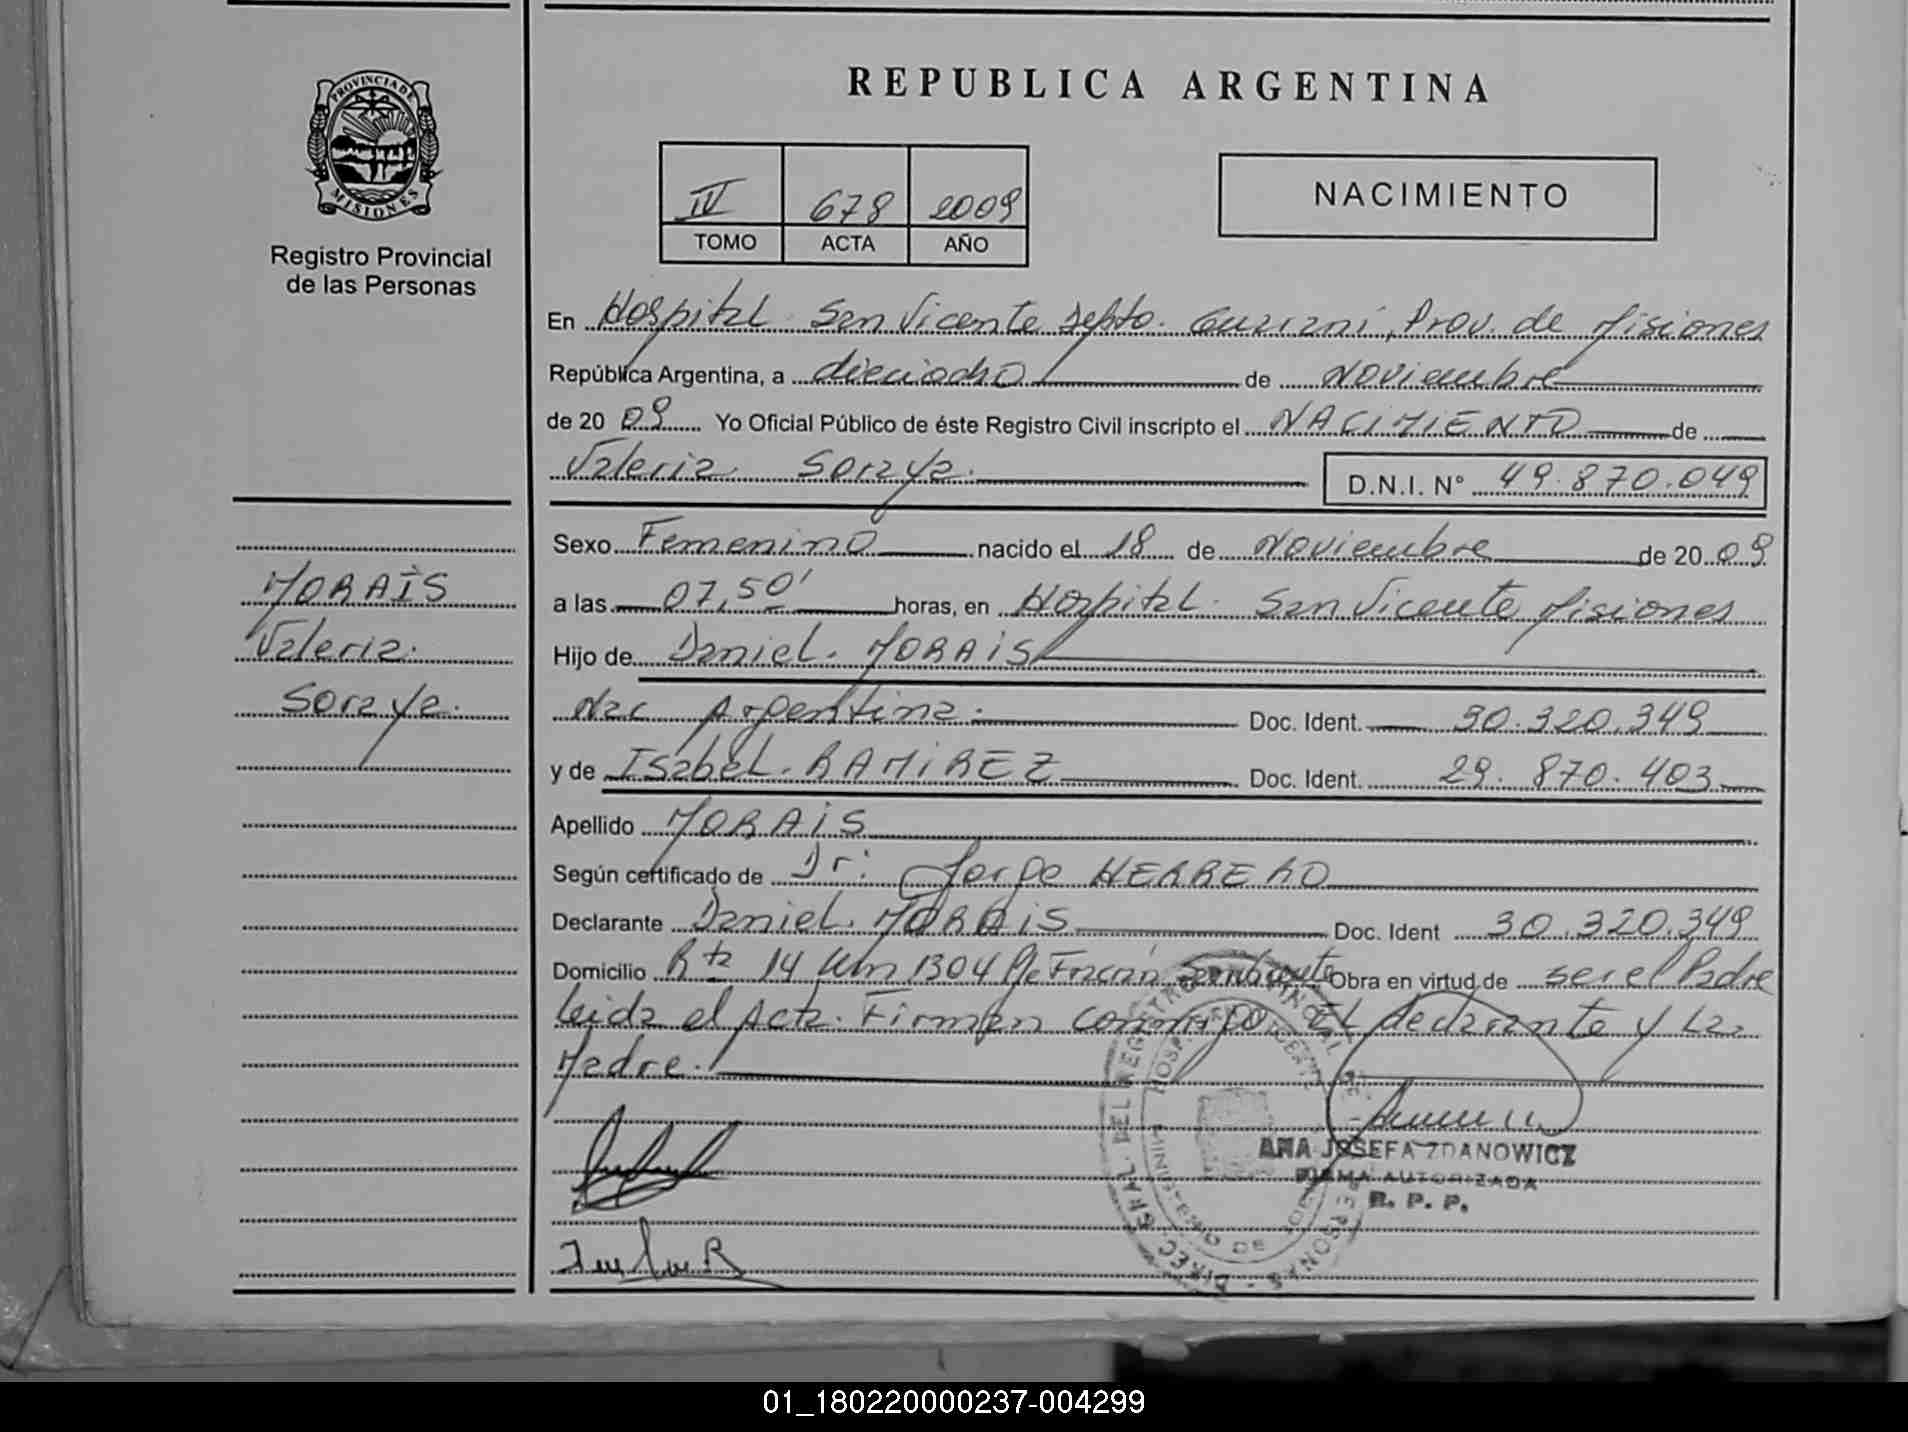 PROVINCIA DE
MISIONES
Registro Provincial
de las Personas
REPUBLICA ARGENTINA
IV 678 2009
TOMO ACTA AÑO
NACIMIENTO
En Hospital San Vicente Depto. Guarani, Prov. de Misiones
República Argentina, a dieciocho de Noviembre
de 20 09 Yo Oficial Público de éste Registro Civil inscripto el NACIMIENTO de
Valeria Soraya. D.N.I. Nº 49.870.049
Sexo Femenino nacido el 18 de Noviembre de 20 09
a las 07,50' horas, en Hospital San Vicente Misiones
Hijo de Daniel MORAIS
Nac Argentina. Doc. Ident. 30.320.349
y de Isabel RAMIREZ Doc. Ident. 29.870.403
Apellido MORAIS
Según certificado de Dr: Jorge HERRERO
Declarante Daniel MORAIS Doc. Ident 30.320.349
Domicilio Rta 14 Km 1304 Pje Fracrán San Vicente Obra en virtud de ser el Padre
Leida el Acta. Firman conmigo El declarante y La
Madre.
MORAIS
Valeria
Soraya.
DIREC. GRAL. DEL REGISTRO PROVINCIAL DE PERSONAS
MINISTERIO DE
ANA JOSEFA ZDANOWICZ
FIRMA AUTORIZADA
R. P. P.
01_180220000237-004299